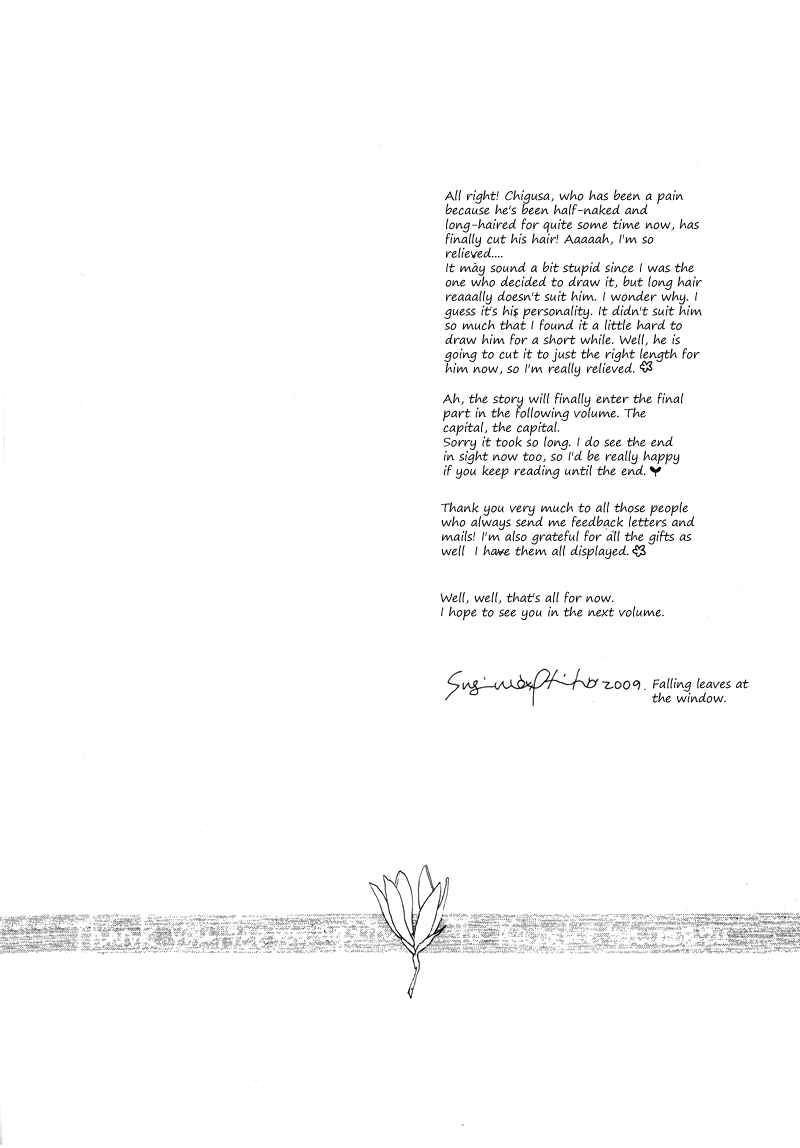 All right! Chigusa, who has been a pain
because he's been half-naked and
long-haired for quite some time now, has
finally cut his hair! Aaaaah, I'm so
relieved....
It may sound a bit stupid since I was the
one who decided to draw it, but long hair
reaaally doesn't suit him. I wonder why. I
guess it's his personality. It didn't suit him
so much that I found it a little hard to
draw him for a short while. Well, he is
going to cut it to just the right length for
him now, so I'm really relieved.
Ah, the story will finally enter the final
part in the following volume. The
capital, the capital.
Sorry it took so long. I do see the end
in sight now too, so I'd be really happy
if you keep reading until the end.
Thank you very much to all those people
who always send me feedback letters and
mails! I'm also grateful for all the gifts as
well  I have them all displayed.
Well, well, that's all for now.
I hope to see you in the next volume.
2009. Falling leaves at
the window.